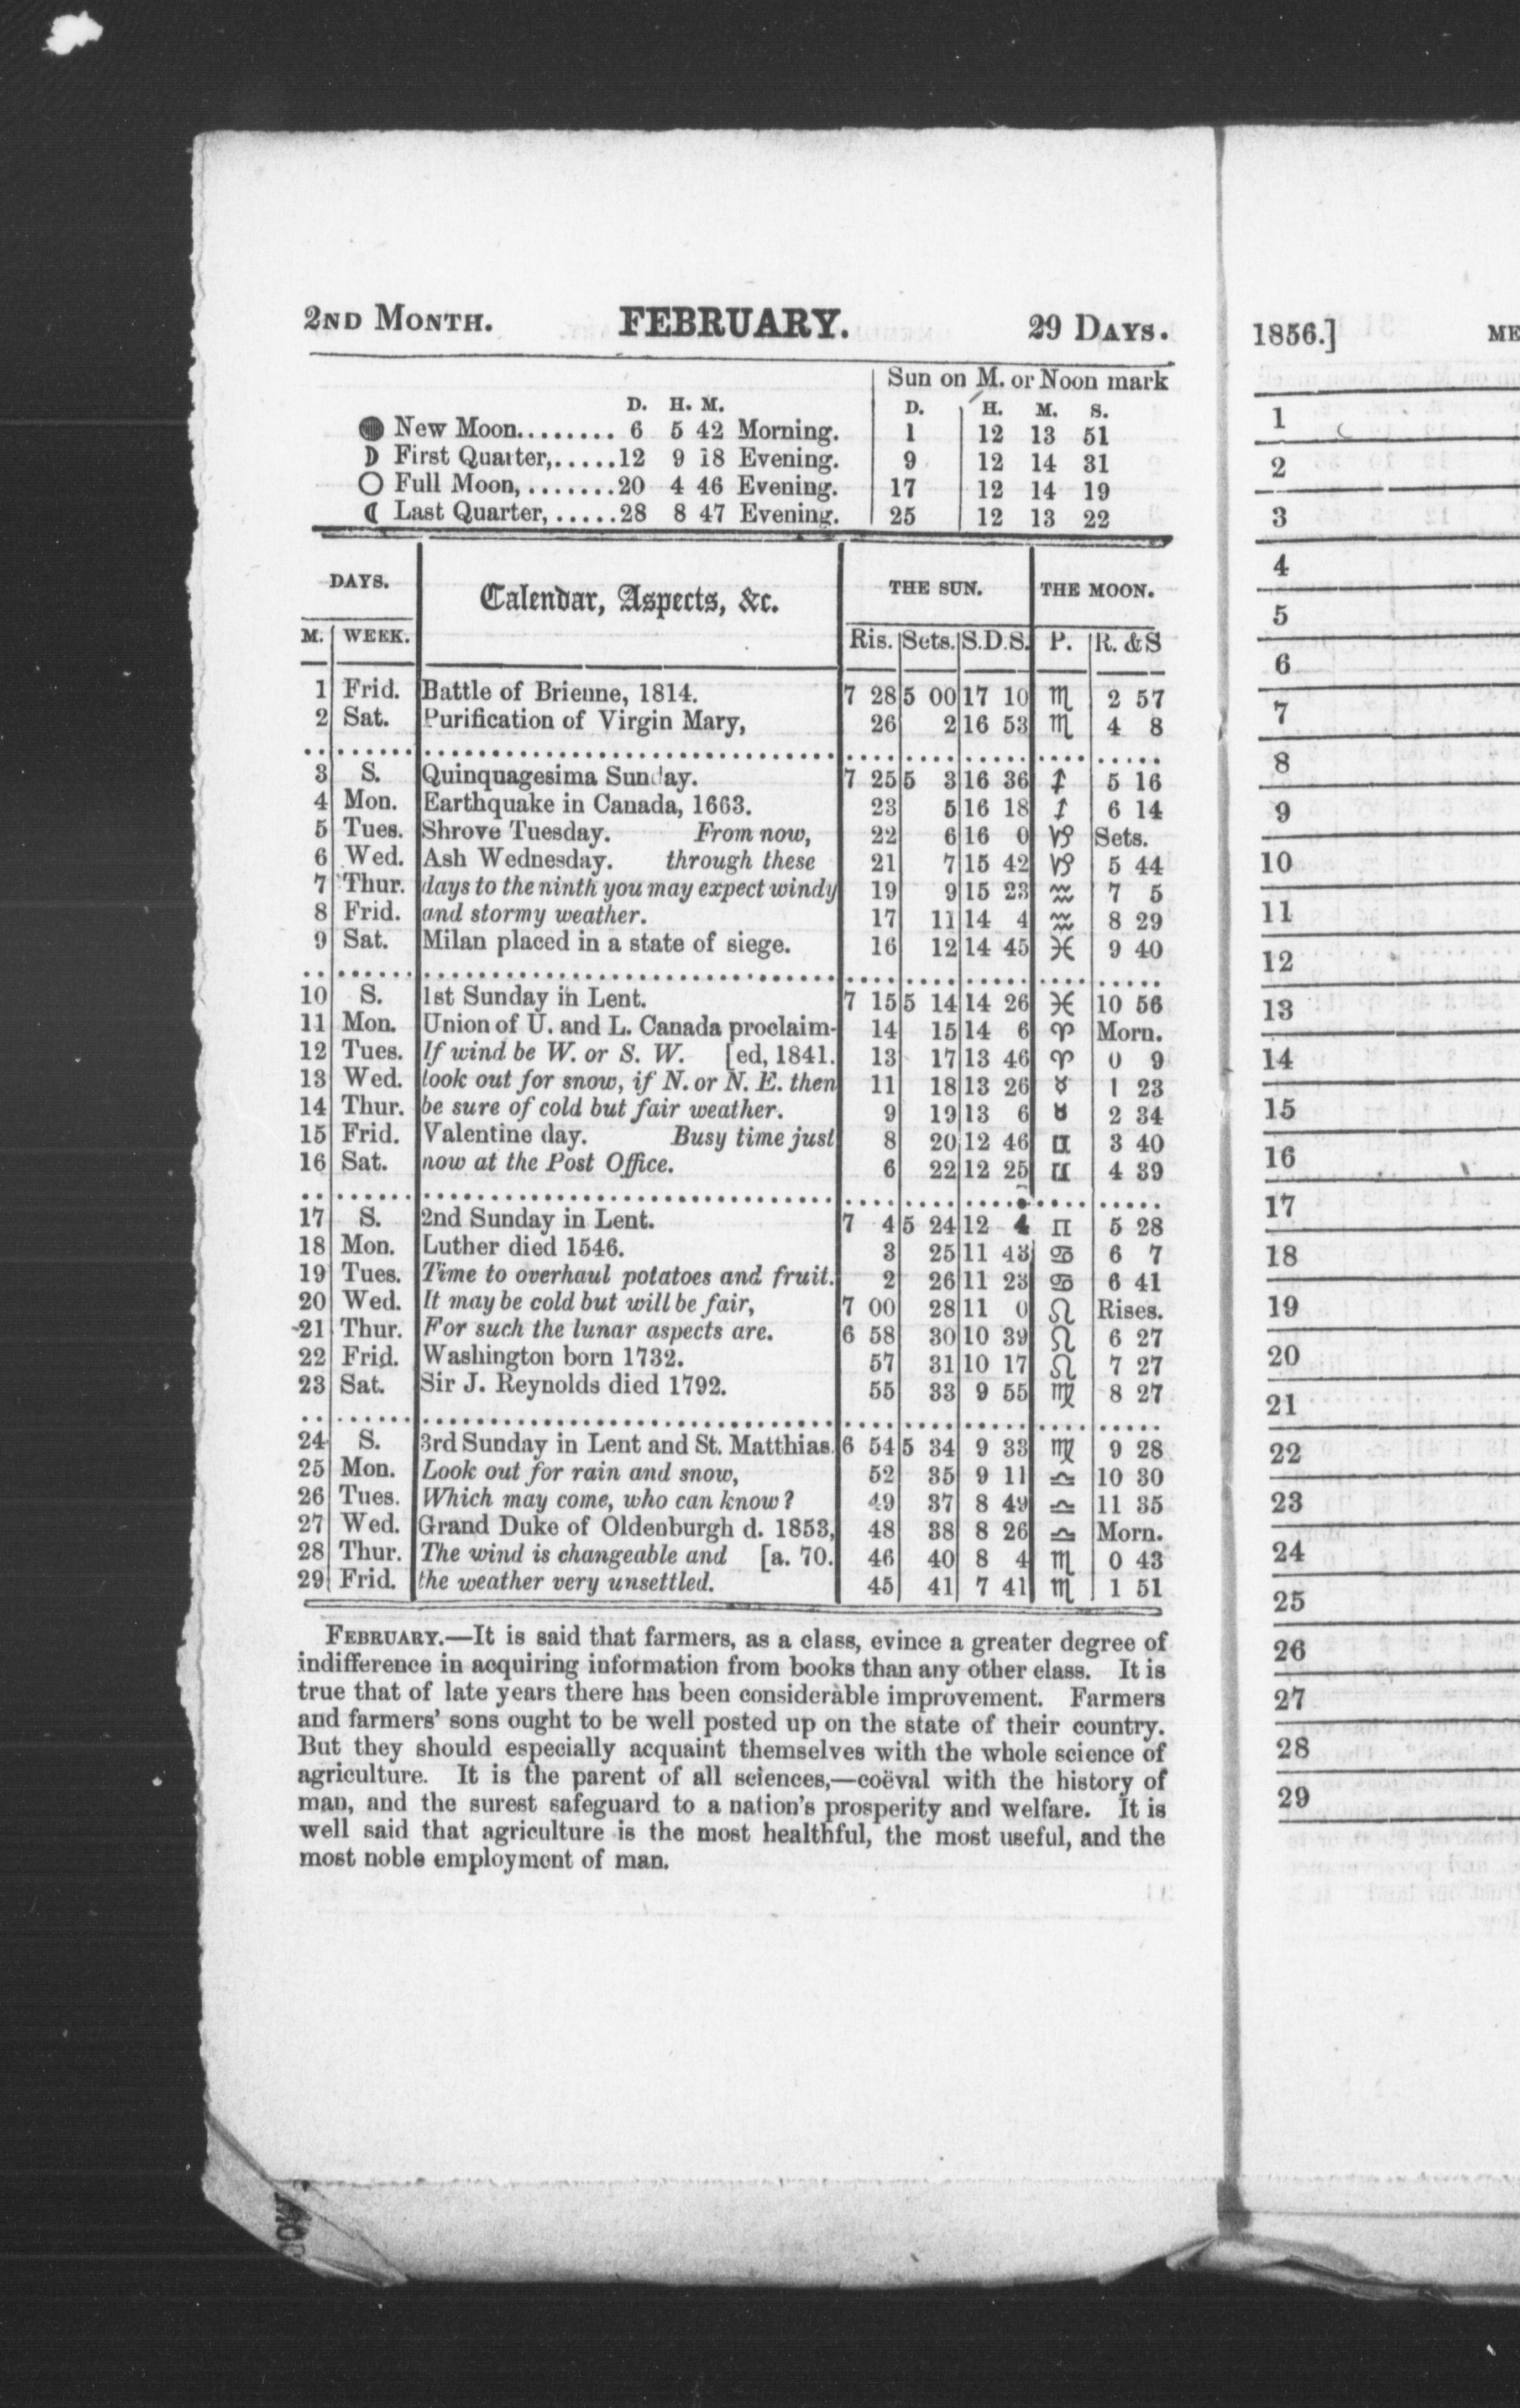 2ND MONTH. FEBRUARY. 29 DAYS.
Sun on M. or Noon mark
D. H. M. D. H. M. S.
● New Moon........ 6 5 42 Morning. 1 12 13 51
☽ First Quarter,.....12 9 18 Evening. 9 12 14 31
○ Full Moon,.......20 4 46 Evening. 17 12 14 19
☾ Last Quarter,.....28 8 47 Evening. 25 12 13 22
DAYS. Calendar, Aspects, &c. THE SUN. THE MOON.
M. WEEK. Ris. Sets. S.D.S. P. R. & S
1 Frid. Battle of Brienne, 1814. 7 28 5 00 17 10 ♏ 2 57
2 Sat. Purification of Virgin Mary, 26 2 16 53 ♏ 4 8
3 S. Quinquagesima Sunday. 7 25 5 3 16 36 ♐ 5 16
4 Mon. Earthquake in Canada, 1663. 23 5 16 18 ♐ 6 14
5 Tues. Shrove Tuesday. From now, 22 6 16 0 ♑ Sets.
6 Wed. Ash Wednesday. through these 21 7 15 42 ♑ 5 44
7 Thur. days to the ninth you may expect windy 19 9 15 23 ♒ 7 5
8 Frid. and stormy weather. 17 11 14 4 ♒ 8 29
9 Sat. Milan placed in a state of siege. 16 12 14 45 ♓ 9 40
10 S. 1st Sunday in Lent. 7 15 5 14 14 26 ♓ 10 56
11 Mon. Union of U. and L. Canada proclaim- 14 15 14 6 ♈ Morn.
12 Tues. If wind be W. or S. W. [ed, 1841. 13 17 13 46 ♈ 0 9
13 Wed. look out for snow, if N. or N. E. then 11 18 13 26 ♉ 1 23
14 Thur. be sure of cold but fair weather. 9 19 13 6 ♉ 2 34
15 Frid. Valentine day. Busy time just 8 20 12 46 ♊ 3 40
16 Sat. now at the Post Office. 6 22 12 25 ♊ 4 39
17 S. 2nd Sunday in Lent. 7 4 5 24 12 4 ♊ 5 28
18 Mon. Luther died 1546. 3 25 11 43 ♋ 6 7
19 Tues. Time to overhaul potatoes and fruit. 2 26 11 23 ♋ 6 41
20 Wed. It may be cold but will be fair, 7 00 28 11 0 ♌ Rises.
21 Thur. For such the lunar aspects are. 6 58 30 10 39 ♌ 6 27
22 Frid. Washington born 1732. 57 31 10 17 ♌ 7 27
23 Sat. Sir J. Reynolds died 1792. 55 33 9 55 ♍ 8 27
24 S. 3rd Sunday in Lent and St. Matthias. 6 54 5 34 9 33 ♍ 9 28
25 Mon. Look out for rain and snow, 52 35 9 11 ♎ 10 30
26 Tues. Which may come, who can know? 49 37 8 49 ♎ 11 35
27 Wed. Grand Duke of Oldenburgh d. 1853, 48 38 8 26 ♎ Morn.
28 Thur. The wind is changeable and [a. 70. 46 40 8 4 ♏ 0 43
29 Frid. the weather very unsettled. 45 41 7 41 ♏ 1 51
FEBRUARY.—It is said that farmers, as a class, evince a greater degree of
indifference in acquiring information from books than any other class. It is
true that of late years there has been considerable improvement. Farmers
and farmers' sons ought to be well posted up on the state of their country.
But they should especially acquaint themselves with the whole science of
agriculture. It is the parent of all sciences,—coëval with the history of
man, and the surest safeguard to a nation's prosperity and welfare. It is
well said that agriculture is the most healthful, the most useful, and the
most noble employment of man.
1856.] ME
1
2
3
4
5
6
7
8
9
10
11
12
13
14
15
16
17
18
19
20
21
22
23
24
25
26
27
28
29